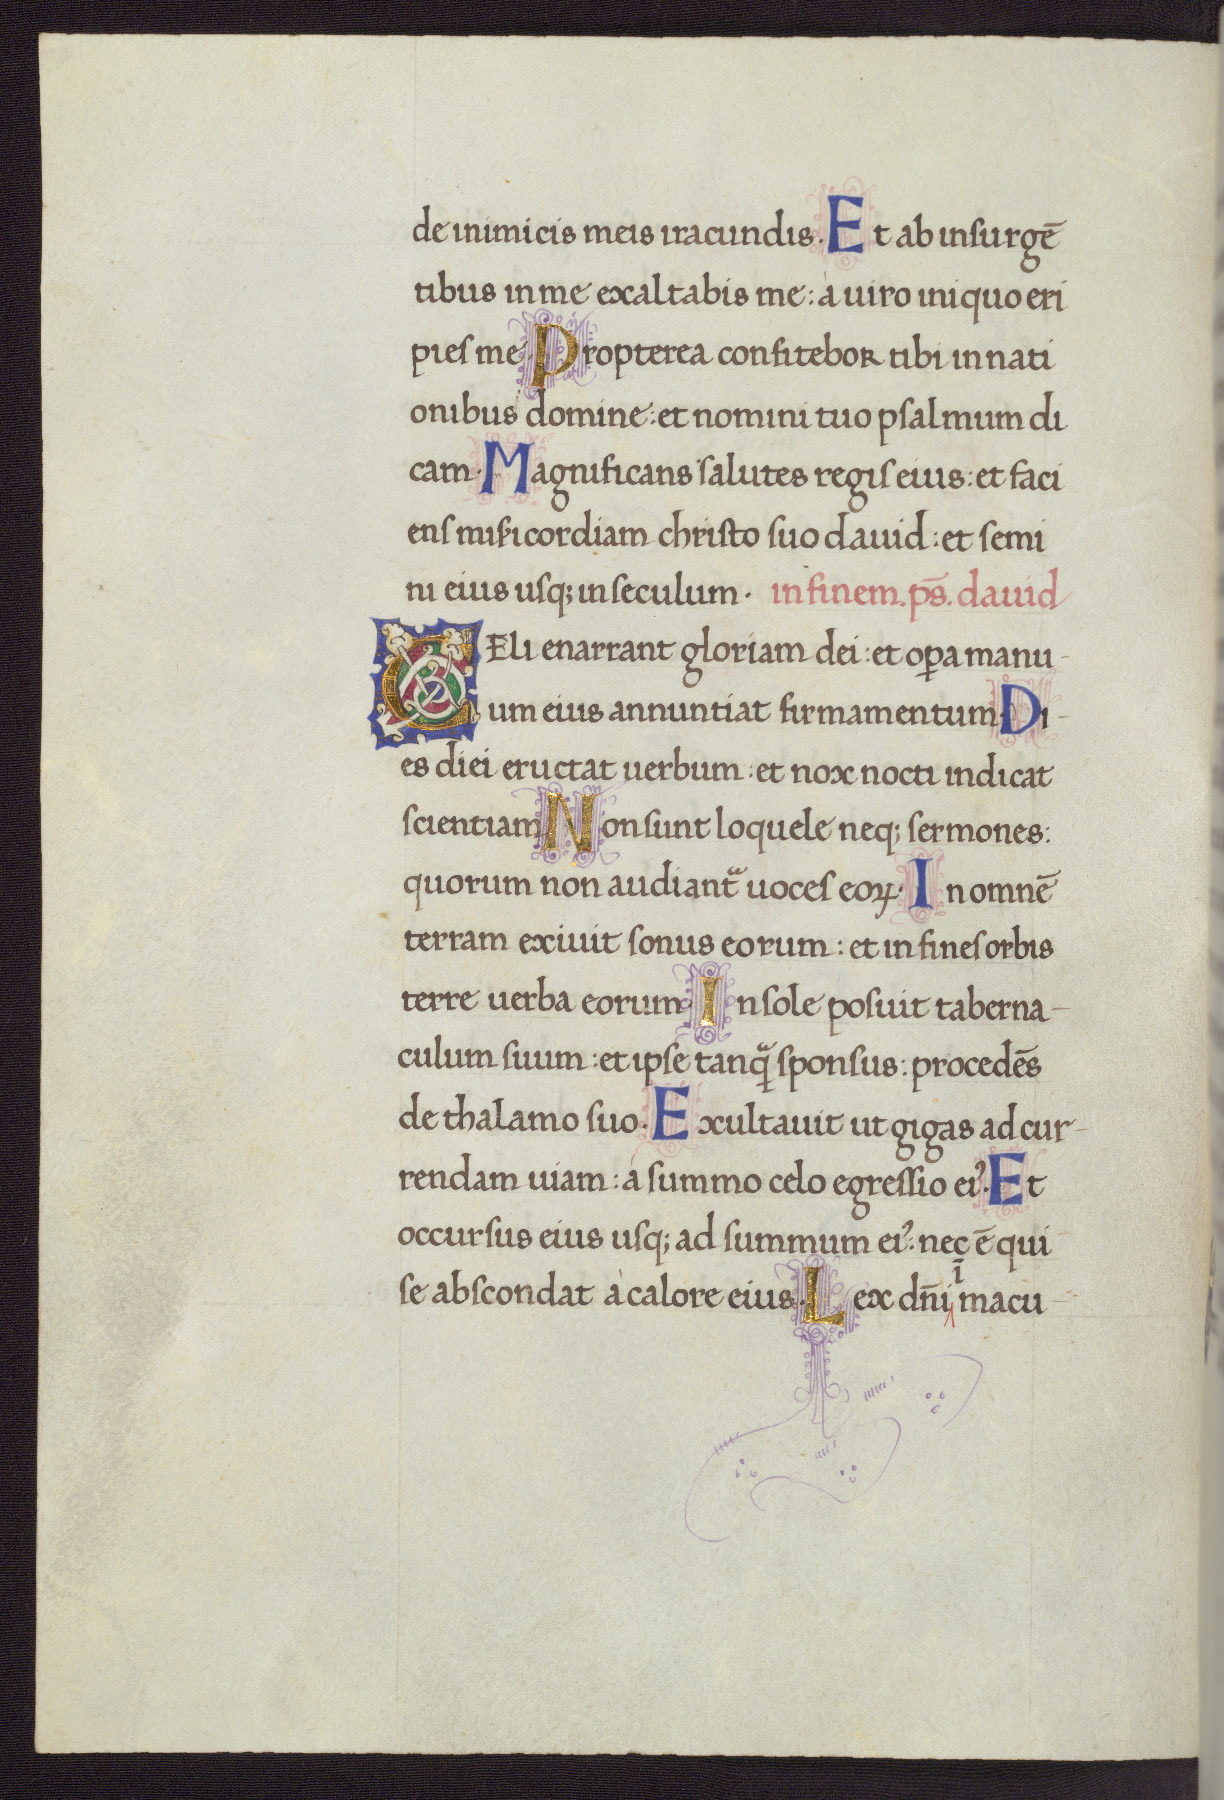 de inimicis meis iracundis. Et ab insurgē
tibus in me exaltabis me: à uiro iniquo eri
pies me. Propterea confitebor tibi in nati
onibus domine: et nomini tuo psalmum di
cam. Magnificans salutes regis eius: et faci
ens mis̄icordiam christo suo dauid: et semi
ni eius usq; in seculum. in finem. ps̄. dauid
CEli enarrant gloriam dei: et oꝑa manu-
um eius annuntiat firmamentum. Di-
es diei eructat uerbum: et nox nocti indicat
scientiam. Non sunt loquele neq; sermones:
quorum non audiant᷑ uoces eoꝝ. In omnē
terram exiuit sonus eorum: et in fines orbis
terre uerba eorum. In sole posuit taberna-
culum suum: et ipse tanꝙ̃ sponsus: procedēs
de thalamo suo. Exultauit ut gigas ad cur-
rendam uiam: a summo celo egressio eiꝰ. Et
occursus eius usq; ad summum eiꝰ: nec ē qui
ī
se abscondat à calore eius. Lex dn̄i macu-